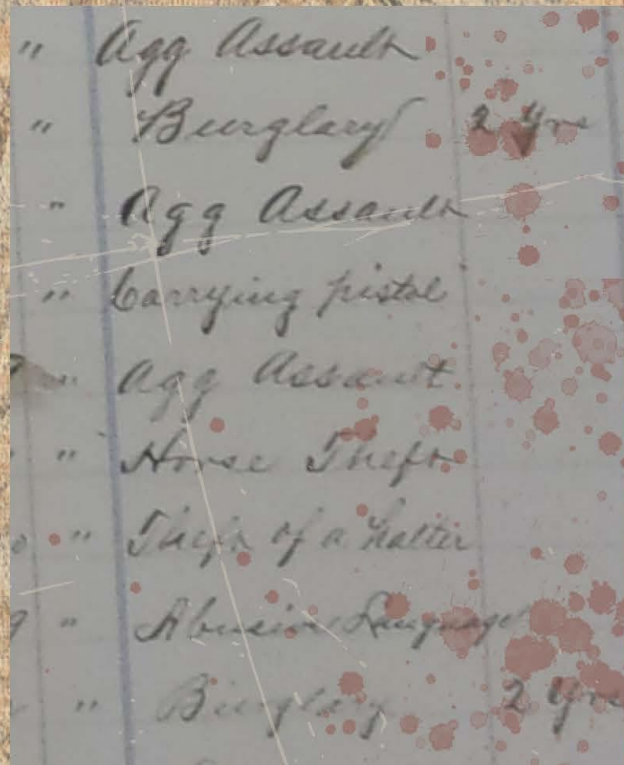 " Agg Assault
" Burglary 2 Yrs
" Agg Assault
" Carrying pistol
" Agg Assault
" Horse Theft
" Theft of a halter
9 " Abusive Language
" Burglary 2 Yrs